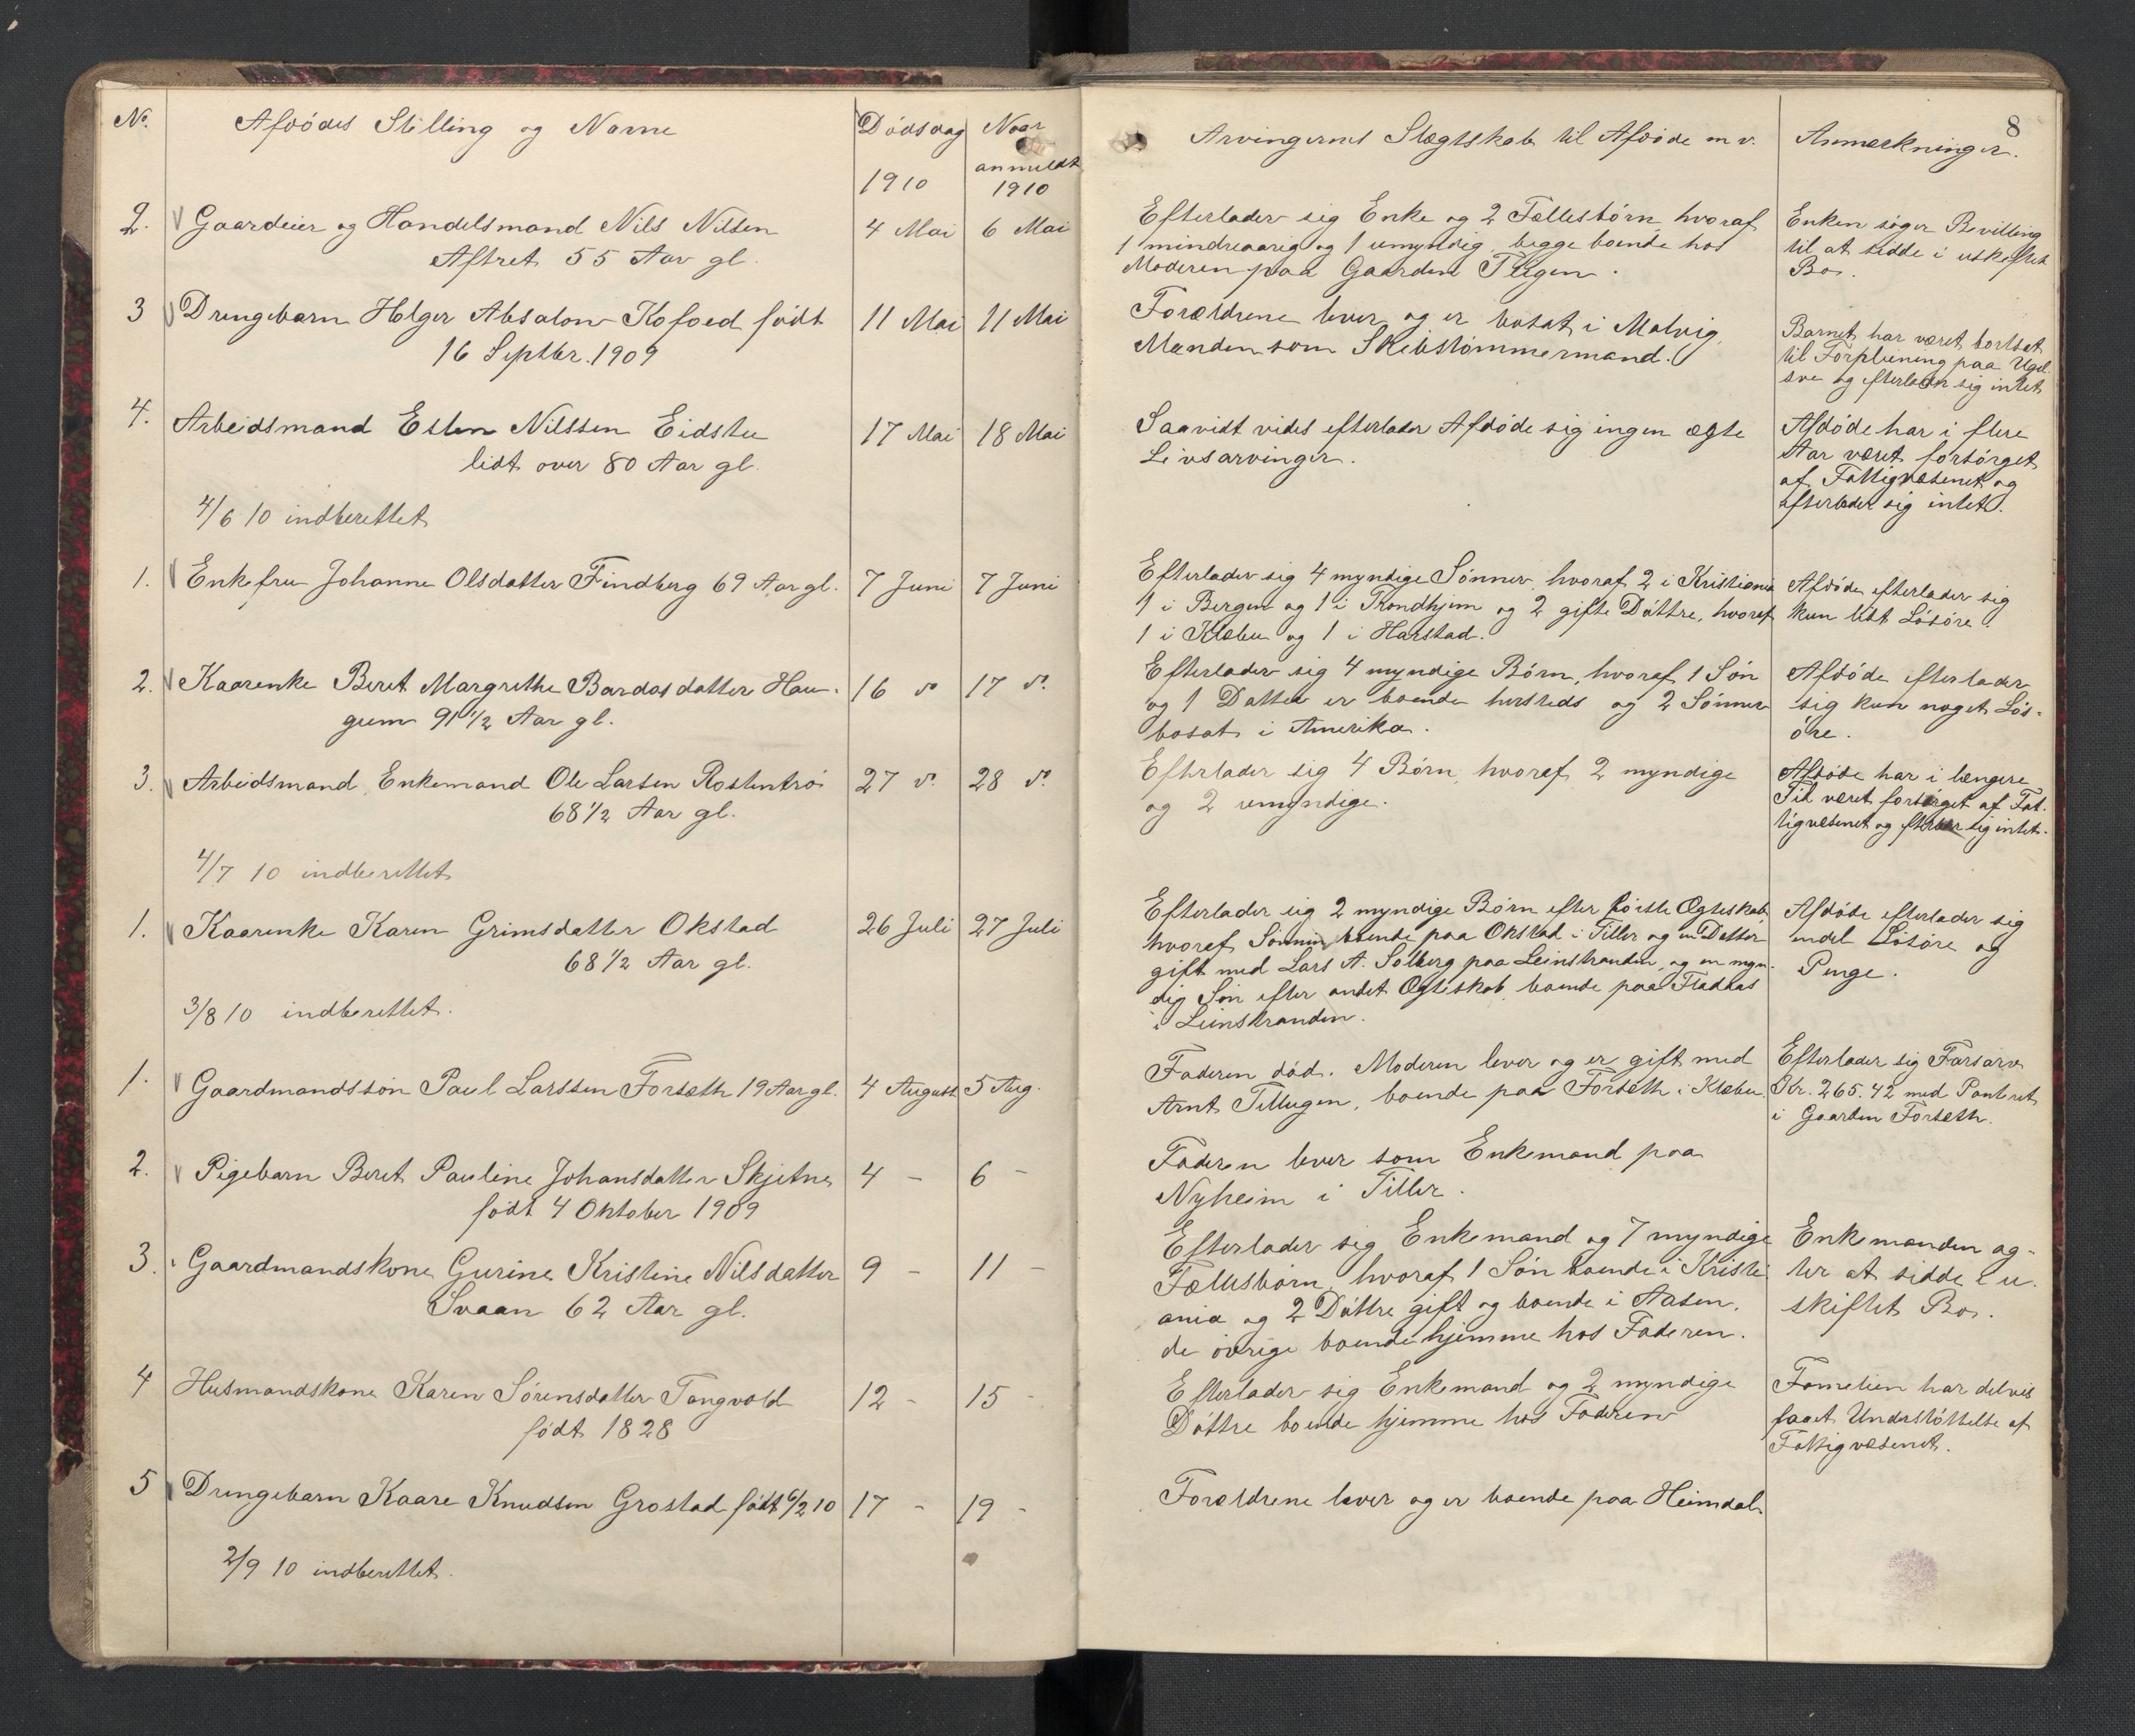 8
No. Afdödes Stilling og Navne Dödsdag Naar
anmeldt
1910 1910
Arvingernes Slægtskab til Afdöde m v. Anmærkninger.
2. Gaardeier og Handelsmand Nils Nilsen 4 Mai 6 Mai
Aftret 55 Aar gl.
Efterlader sig Enke og 2 Fællesbörn, hvoraf
1 mindreaarig og 1 umyndig, begge boende hos
Moderen paa Gaarden
Enken söger Bevilling
til at sidde i uskiftet
Bo.
3 Drengebarn Holger Absalon Kofoed födt 11 Mai 11 Mai
16 Septbr. 1909
Forældrene lever og er bosat i Malvig,
Manden som Skibstömmermand.
Barnet har været bortsat
til Forpleining paa
og efterlader sig intet
4. Arbeidsmand Esten Nilssen Eidstu 17 Mai 18 Mai
lidt over 80 Aar gl.
Saavidt vides efterlader Afdöde sig ingen ægte
Livsarvinger.
Afdöde har i flere
Aar været forsörget
af Fattigvæsenet og
efterlader sig intet.
4/6 10 indberettet
1. Enkefru Johanne Olsdatter Findberg 69 Aar gl. 7 Juni 7 Juni
Efterlader sig 4 myndige Sönner, hvoraf 2 i Kristiania
1 i Bergen og 1 i Trondhjem og 2 gifte Döttre, hvoraf
1 i Klæbu og 1 i Harstad.
Afdöde efterlader sig
kun lidt Lösöre.
2. Kaarenke Beret Margrethe Bardosdatter Hau- 16 do 17 do.
gum 91 1/2 Aar gl.
Efterlader sig 4 myndige Börn, hvoraf 1 Sön
og 1 Datter er boende hersteds og 2 Sönner
bosat i Amerika.
Afdöde efterlader
sig kun noget Lös-
öre.
3. Arbeidsmand, Enkemand Ole Larsen Rostentrö 27 do. 28 do.
68 1/2 Aar gl.
Efterlader sig 4 Börn, hvoraf 2 myndige
og 2 umyndige.
Afdöde har i længere
Tid været forsörget af Fat-
tigvæsenet og efterlader sig intet.
4/7 10 indberettet
1. Kaarenke Karen Grimsdatter Okstad 26 Juli 27 Juli
68 1/2 Aar gl.
Efterlader sig 2 myndige Börn efter förste Ægteskab,
hvoraf Sönnen boende paa Okstad i Tiller og en Datter
gift med Lars A. Solberg paa Leinstranden, og en myn-
dig Sön efter andet Ægteskab, boende paa Fladaas
i Leinstranden.
Afdöde efterlader sig
endel Lösöre og
Penge.
3/8 10 indberettet.
1. Gaardmandssön Paul Larssen Forseth 19 Aar gl. 4 August 5 Aug.
Faderen död. Moderen lever og er gift med
Arnt Tellugen, boende paa Forseth i Klæbu.
Efterlader sig Farsarv
Kr. 265.42 med Panteret
i Gaarden Forseth.
2. Pigebarn Beret Pauline Johansdatter Skjetne 4 - 6 -
födt 4 Oktober 1909
Faderen lever som Enkemand paa
Nyheim i Tiller.
3. Gaardmandskone Gurine Kristine Nilsdatter 9 - 11 -
Svaan 62 Aar gl.
Efterlader sig Enkemand og 7 myndige
Fællesbörn, hvoraf 1 Sön boende i Kristi-
ania og 2 Döttre gift og boende i Aasen,
de övrige boende hjemme hos Faderen.
Enkemanden ag-
ter at sidde i u-
skiftet Bo.
4 Husmandskone Karen Sörensdatter Tangvold 12 - 15 -
födt 1828
Efterlader sig Enkemand og 2 myndige
Döttre boende hjemme hos Faderen
Familien har delvis
faaet Understöttelse af
Fattigvæsenet.
5 Drengebarn Kaare Knudsen Grostad födt 6/2 10 17 - 19 -
Forældrene lever og er boende paa Heimdal.
2/9 10 indberettet.